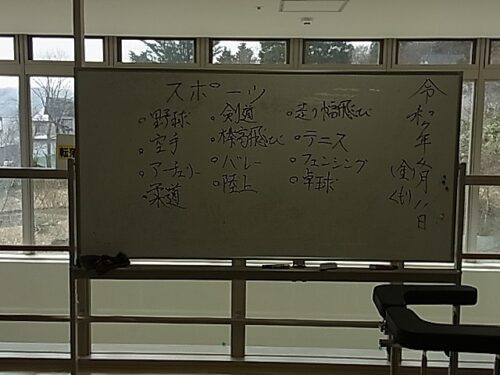 スポーツ
○野球
○空手
○アーチェリー
○柔道
○剣道
○棒高飛び
○バレー
○陸上
○走り幅飛び
○テニス
○フェンシング
○卓球
令和7年4月11日
(金)
くもり